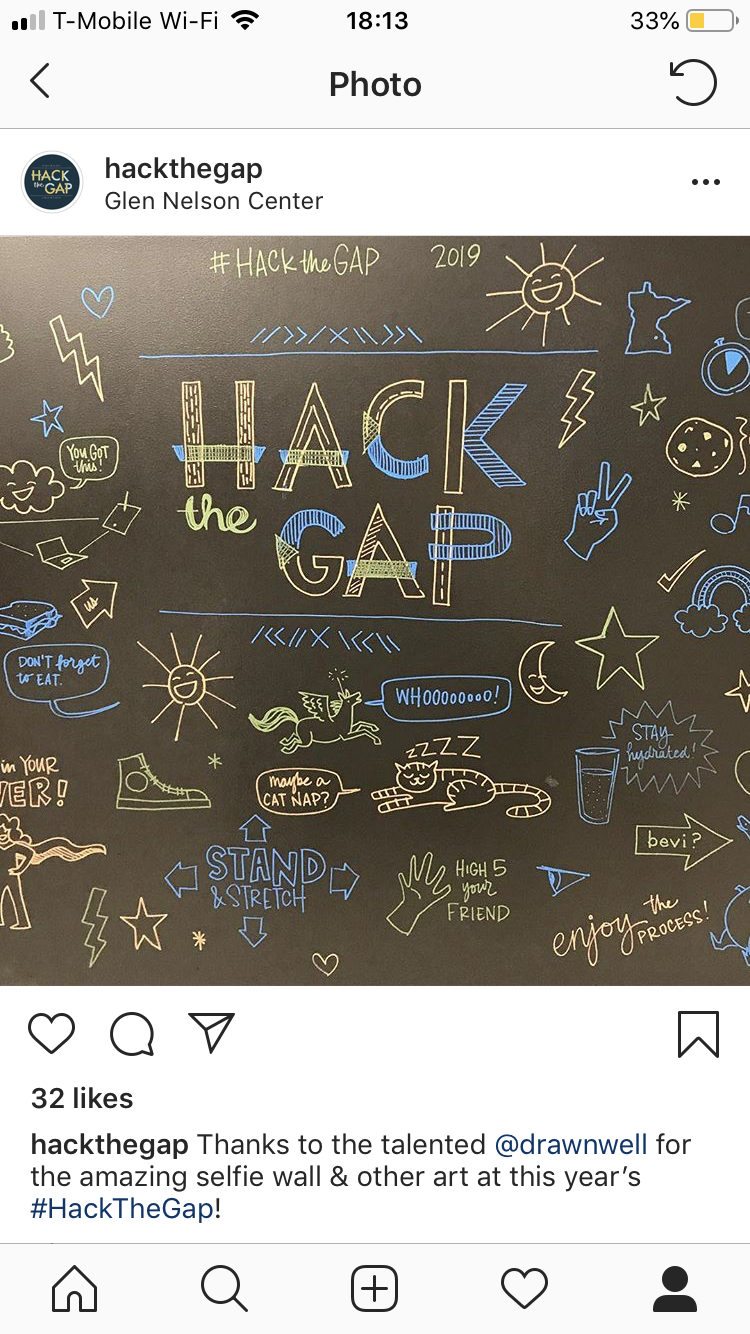 T-Mobile Wi-Fi 18:13 33%
Photo
HACK
the GAP
hackthegap
Glen Nelson Center
#HACK the GAP 2019
HACK
the
GAP
You GoT
this!
us
DON'T forget
to EAT.
WHOOOOOOOO!
zzzz
STAY
hydrated!
in YOUR
VER!
maybe a
CAT NAP?
bevi?
STAND
& STRETCH
HIGH 5
your
FRIEND
enjoy the
PROCESS!
32 likes
hackthegap Thanks to the talented @drawnwell for
the amazing selfie wall & other art at this year’s
#HackTheGap!